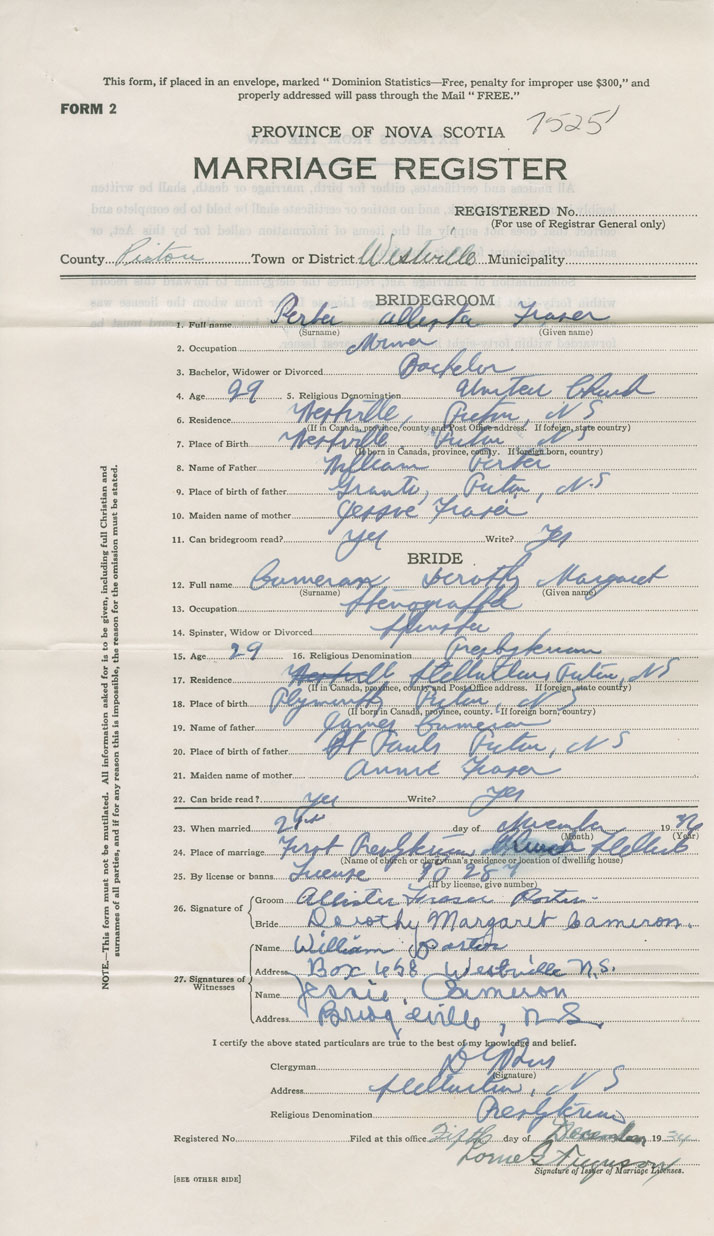 This form, if placed in an envelope, marked "Dominion Statistics—Free, penalty for improper use $300," and
properly addressed will pass through the Mail "FREE."
FORM 2
PROVINCE OF NOVA SCOTIA 7525
MARRIAGE REGISTER
REGISTERED No.
(For use of Registrar General only)
County Pictou Town or District Westville Municipality
BRIDEGROOM
1. Full name Allister Fraser
(Surname) (Given name)
2. Occupation Miner
3. Bachelor, Widower or Divorced Bachelor
4. Age 29 5. Religious Denomination United Church
6. Residence Westville, Pictou, N S
(If in Canada, province, county and Post Office address. If foreign, state country)
7. Place of Birth Westville Pictou N S
(If born in Canada, province, county. If foreign born, country)
8. Name of Father William
9. Place of birth of father Pictou, N.S
10. Maiden name of mother Jessie Fraser
11. Can bridegroom read? yes Write? yes
BRIDE
12. Full name Cameron Dorothy Margaret
(Surname) (Given name)
13. Occupation Stenographer
14. Spinster, Widow or Divorced Spinster
15. Age 29 16. Religious Denomination Presbyterian
17. Residence Westville Stellarton Pictou, N S
(If in Canada, province, county and Post Office address. If foreign, state country)
18. Place of Birth Plymouth Pictou, N S
(If born in Canada, province, county. If foreign born, country)
19. Name of father James Cameron
20. Place of birth of father St Pauls Pictou, N S
21. Maiden name of mother Annie Fraser
22. Can bride read? yes Write? yes
23. When married day of 19
(Month) (Year)
24. Place of marriage First Presbyterian Church
(Name of church or clergyman's residence or location of dwelling house)
25. By license or banns License
(If by license, give number)
26. Signature of Groom Allister Fraser
Bride Dorothy Margaret Cameron.
27. Signatures of Witnesses Name William
Address Box 458 Westville N.S.
Name Jessie Cameron
Address Bridgeville, N.S.
I certify the above stated particulars are true to the best of my knowledge and belief.
Clergyman
(Signature)
Address Stellarton, N S
Religious Denomination Presbyterian
Registered No. Filed at this office Fifth day of December 1934
Lorne G Ferguson
Signature of Issuer of Marriage Licenses.
[SEE OTHER SIDE]
NOTE.—This form must not be mutilated. All information asked for is to be given, including full Christian and
surnames of all parties, and if for any reason this is impossible, the reason for the omission must be stated.